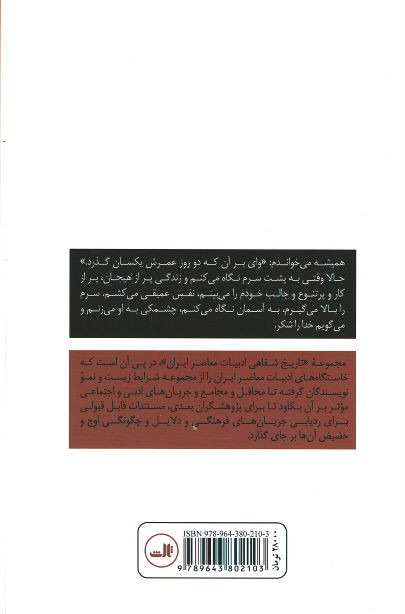 همیشه می‌خواندم: «وای بر آن که دو روز عمرش یکسان گذرد.»
حالا وقتی به پشت سرم نگاه می‌کنم و زندگی پر از هیجان، پر از
کار و پرتنوع و جالب خودم را می‌بینم، نفس عمیقی می‌کشم، سرم
را بالا می‌گیرم، به آسمان نگاه می‌کنم، چشمکی به او می‌زنم و
می‌گویم خدا را شکر.
مجموعهٔ «تاریخ شفاهی ادبیات معاصر ایران»، در پی آن است که
خاستگاه‌های ادبیات معاصر ایران را از مجموعه شرایط زیست و نموّ
نویسندگان گرفته تا محافل و مجامع و جریان‌های ادبی و اجتماعی
مؤثر بر آن بکاود تا برای پژوهشگران بعدی، مستندات قابل قبولی
برای ردیابی جریان‌های فرهنگی و دلایل و چگونگی اوج و
حضیض آن‌ها بر جای گذارد.
ISBN 978-964-380-210-3
9 789643 802103
ثالث
۲۸۰۰۰ تومان